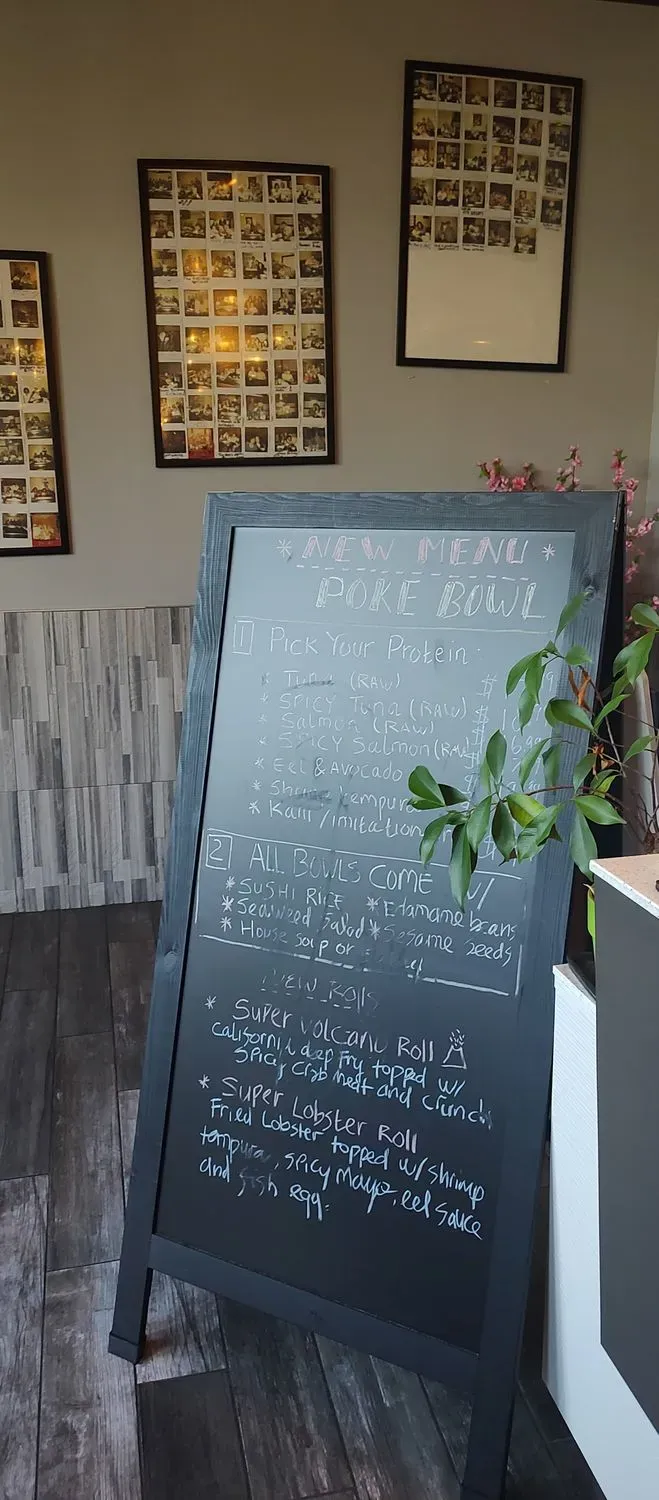 * NEW MENU *
POKE BOWL
1 Pick Your Protein:
* Tuna (RAW) $
* SPICY Tuna (RAW) $
* Salmon (RAW)
* SPICY Salmon (RAW)
* Eel & Avocado
* Shrimp tempura
* Kani / imitation
2 ALL BOWLS COME W/
* SUSHI RICE * Edamame beans
* Seaweed Salad * Sesame Seeds
* House soup or
NEW Rolls
* Super Volcano Roll
California deep fry topped w/
Spicy Crab meat and Crunch
* Super Lobster Roll
Fried Lobster topped w/ shrimp
tempura, spicy mayo, eel sauce
and fish egg.